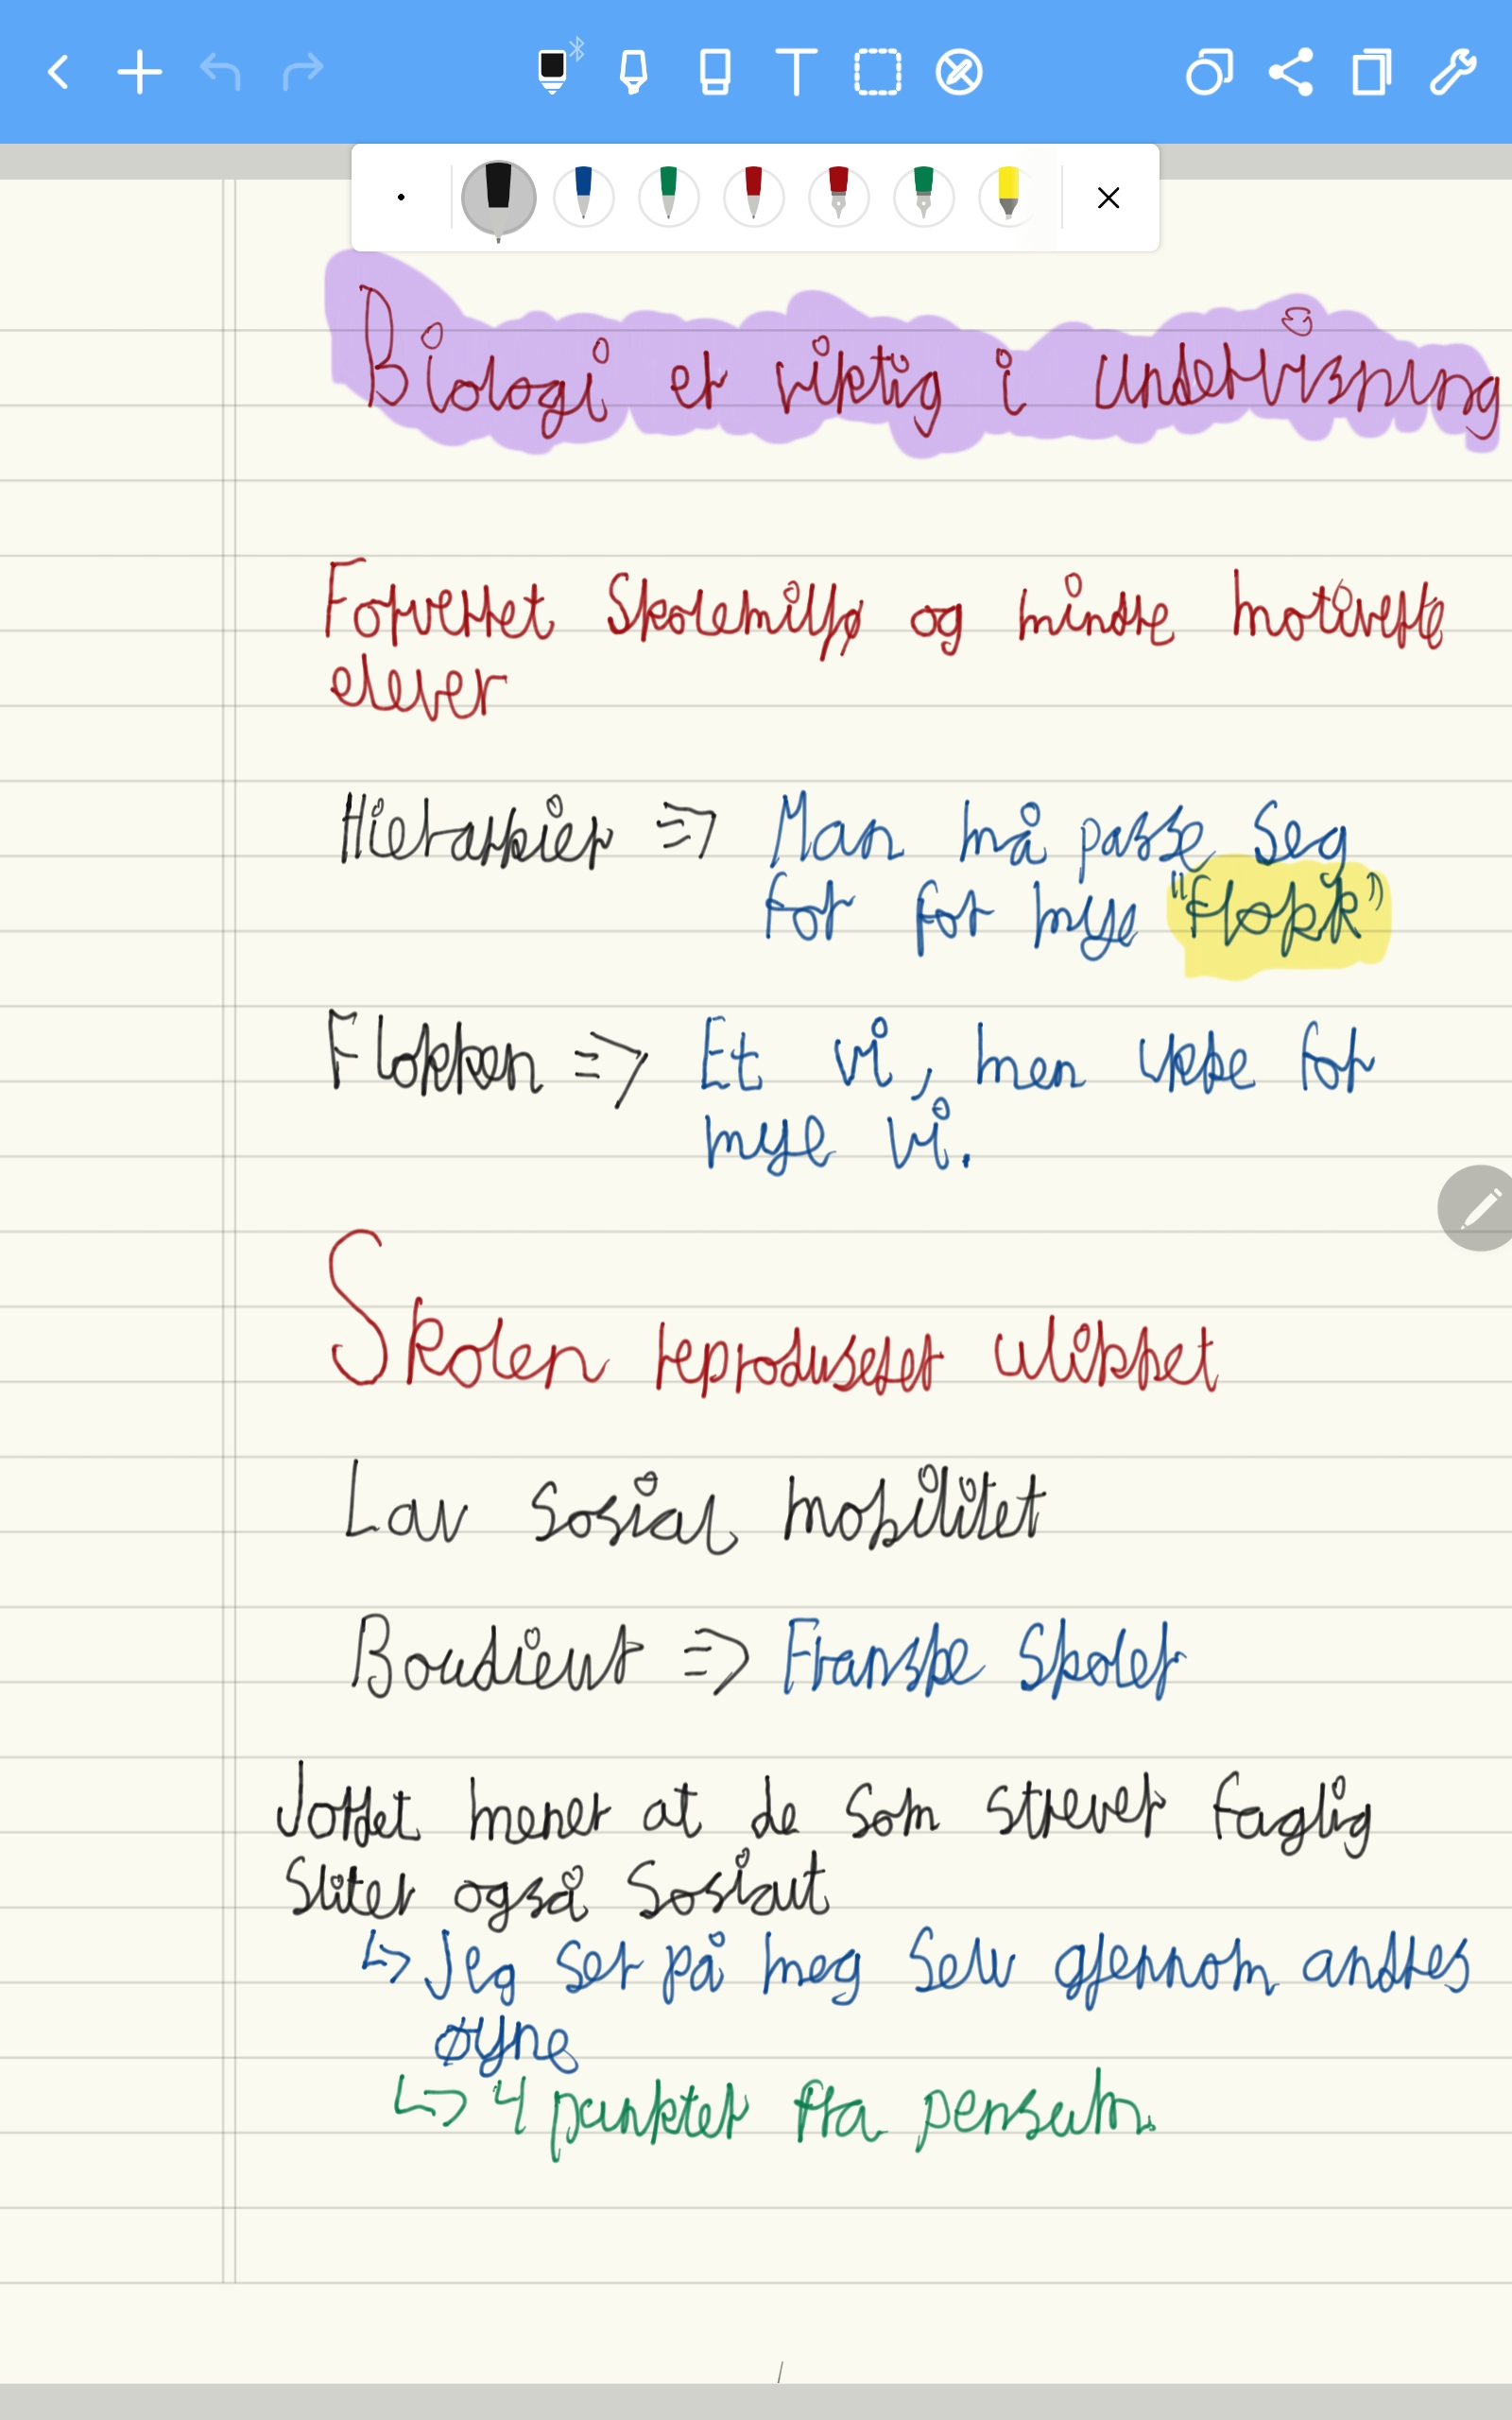 Biologi er viktig i undervisning
Forverret skolemiljø og mindre motiverte
elever
Hierarkier => Man må passe seg
for for mye "flokk"
Flokken => Et vi, men ikke for
mye vi.
Skolen reproduserer ulikhet
Lav sosial mobilitet
Boudieut => Franske skoler
Jordet mener at de som strever faglig
sliter også sosialt
↳ Jeg ser på meg selv gjennom andres
øyne
↳ 4 punkter fra pensum